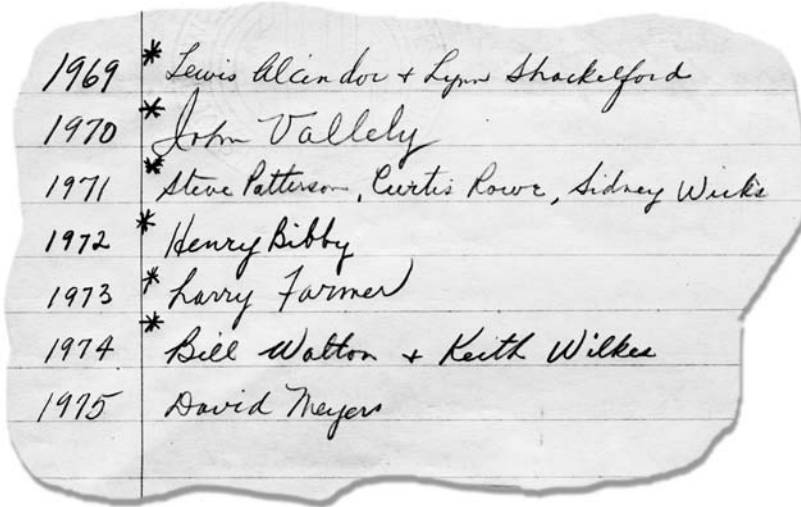 1969 * Lewis Alcindor + Lynn Shackelford
1970 * John Vallely
1971 * Steve Patterson, Curtis Rowe, Sidney Wicks
1972 * Henry Bibby
1973 * Larry Farmer
1974 * Bill Walton + Keith Wilkes
1975 David Meyers